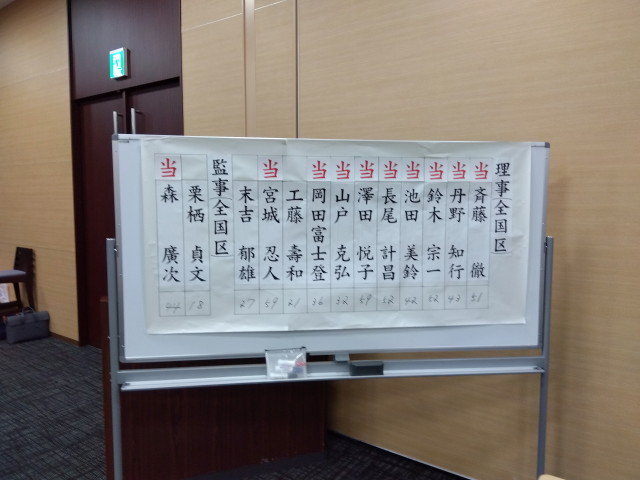 理事(全国区)
当 斉藤 徹 51
当 丹野 知行 43
当 鈴木 宗一 52
当 池田 美鈴 42
当 長尾 計昌 52
当 澤田 悦子 59
当 山戸 克弘 32
当 岡田富士登 36
工藤 壽和 21
当 宮城 忍人 59
末吉 郁雄 27
監事(全国区)
栗栖 貞文 18
当 森 廣次 44